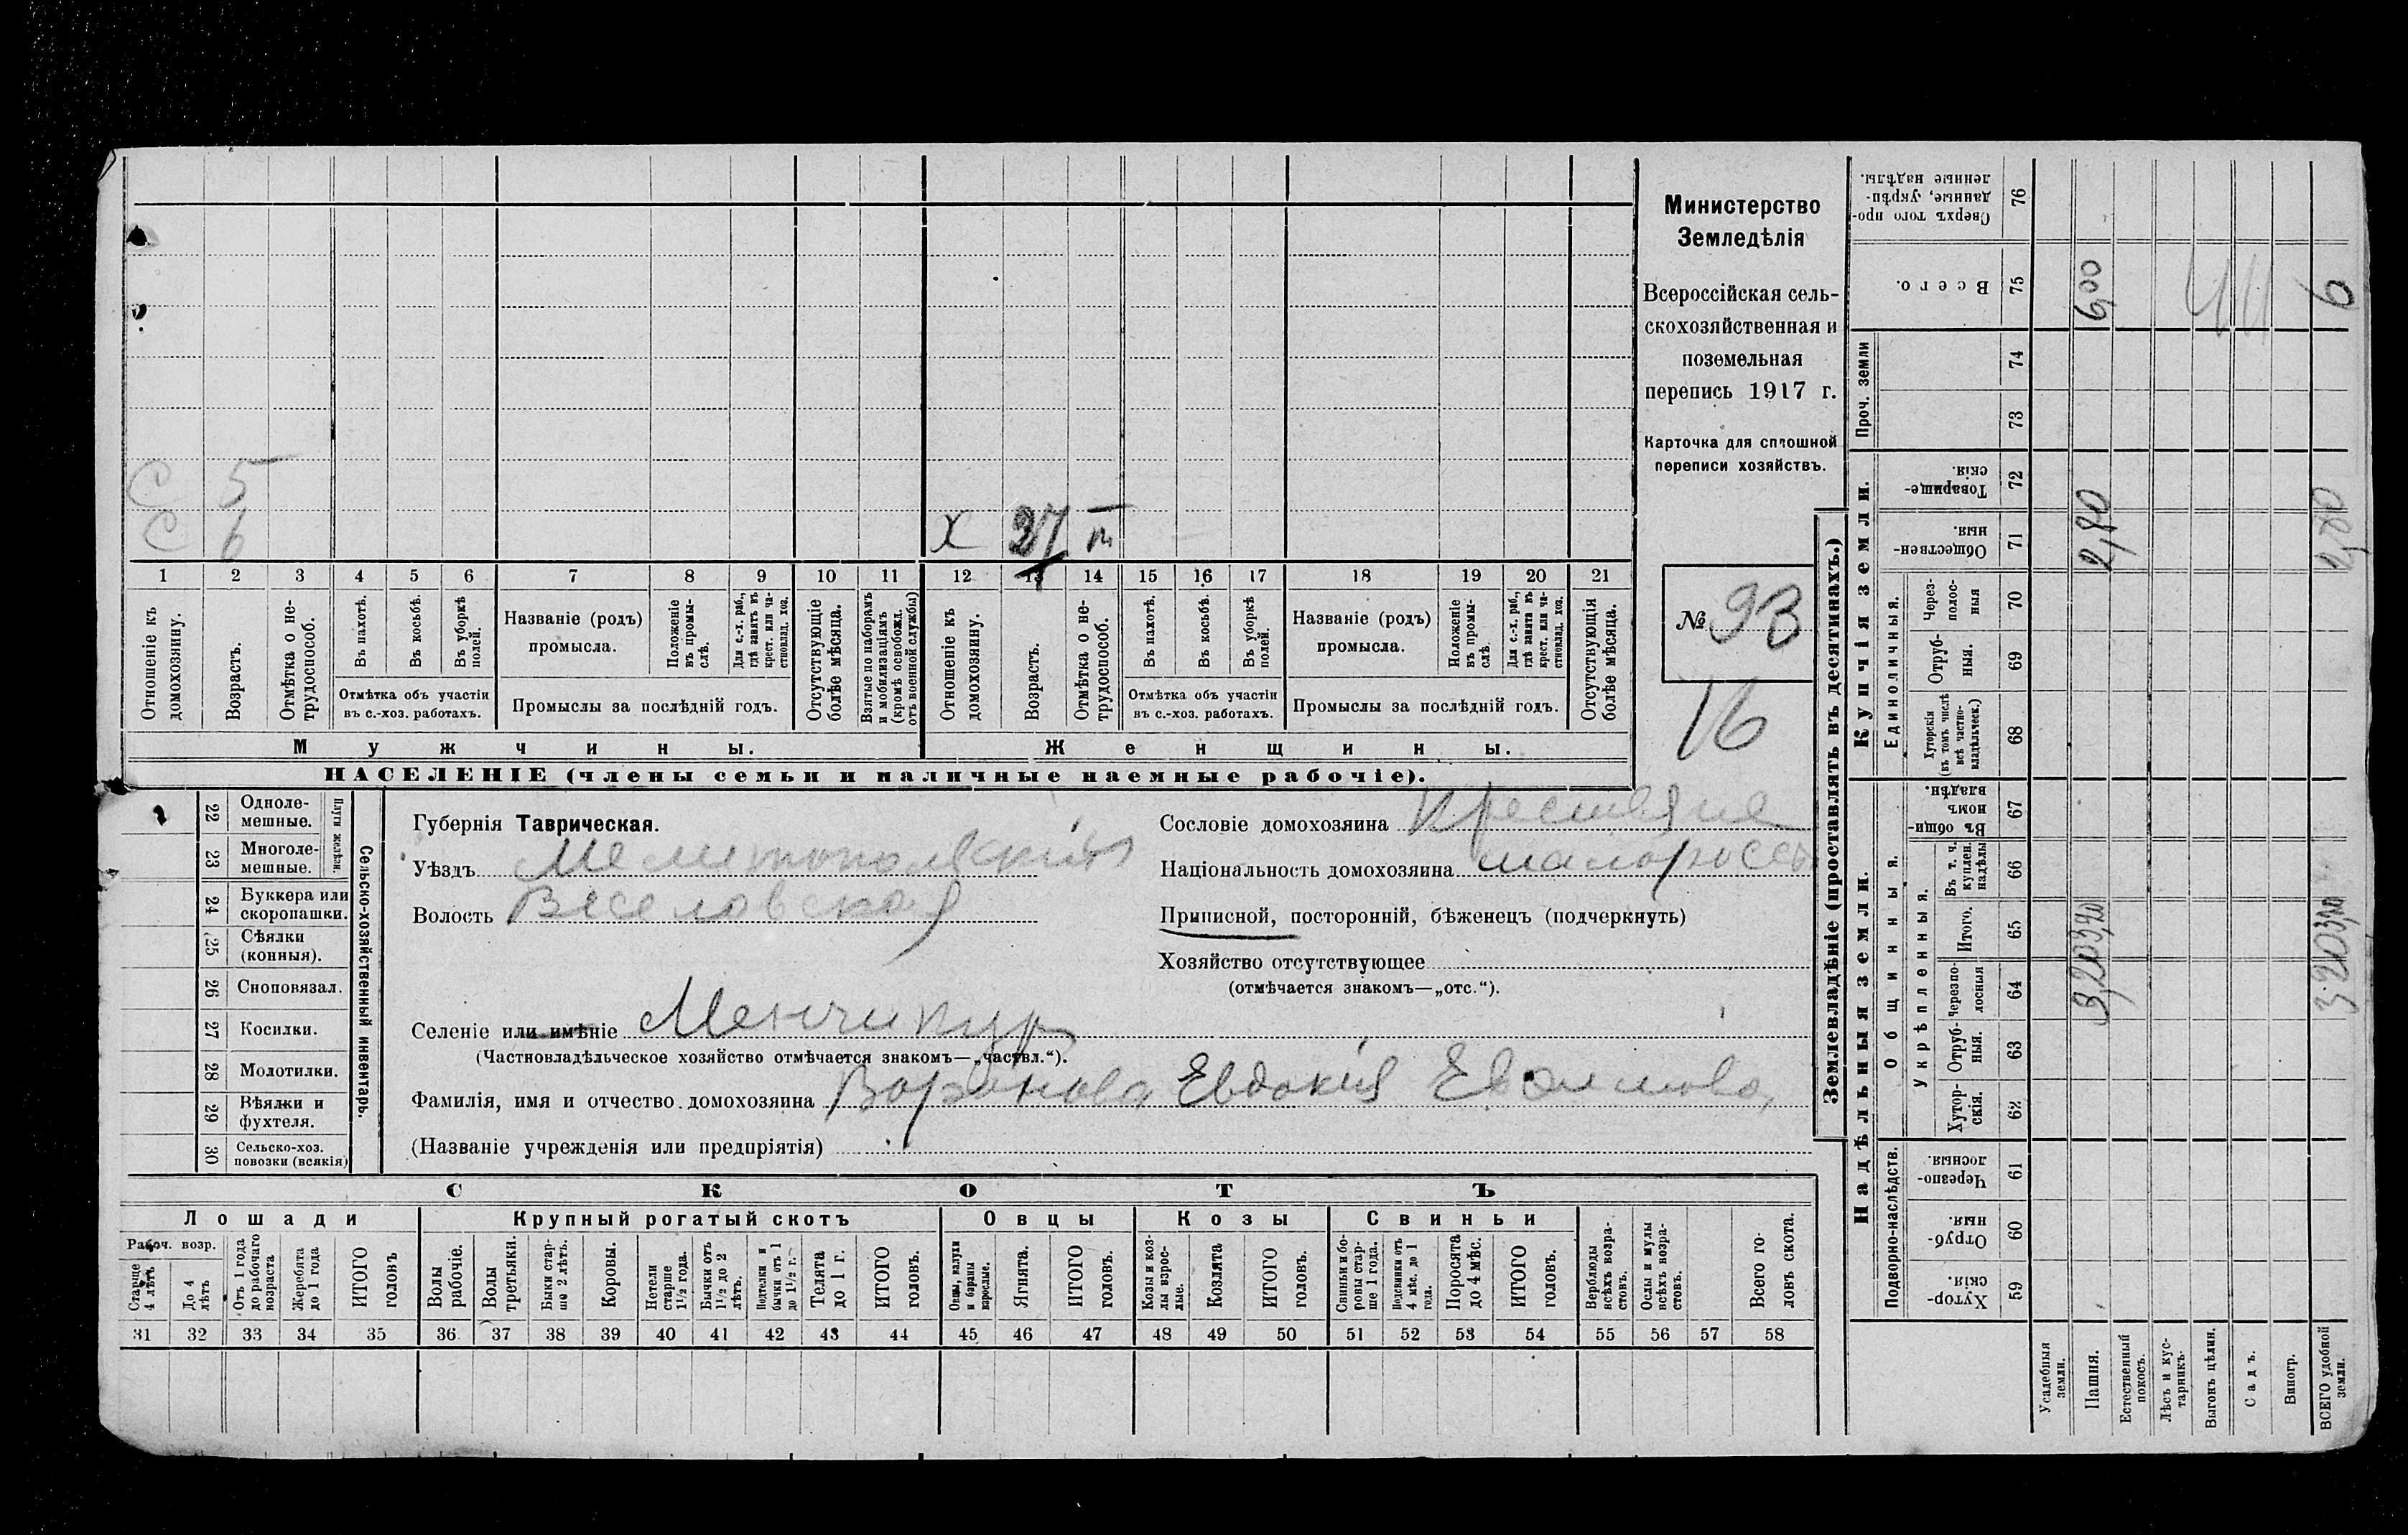 С 5
С 6
Х 37 т
1 2 3 4 5 6 7 8 9 10 11 12 13 14 15 16 17 18 19 20 21
Отношеніе къ домохозяину.
Возрастъ.
Отмѣтка о не-трудоспособ.
Въ пахотѣ.
Въ косьбѣ.
Въ уборкѣ полей.
Отмѣтка объ участіи
въ с.-хоз. работахъ.
Названіе (родъ)
промысла.
Положеніе въ промы-слѣ.
Для с.-х. раб., гдѣ занятъ въ крест. или ча-стновлад. хоз.
Промыслы за послѣдній годъ.
Отсутствующіе болѣе мѣсяца.
Взятые по наборамъ и мобилизаціямъ (кромѣ освобожд. отъ военной службы)
Отношеніе къ домохозяину.
Возрастъ.
Отмѣтка о не-трудоспособ.
Въ пахотѣ.
Въ косьбѣ.
Въ уборкѣ полей.
Отмѣтка объ участіи
въ с.-хоз. работахъ.
Названіе (родъ)
промысла.
Положеніе въ промы-слѣ.
Для с.-х. раб., гдѣ занята въ крест. или ча-стновлад. хоз.
Промыслы за послѣдній годъ.
Отсутствующія болѣе мѣсяца.
Мужчины.
Женщины.
НАСЕЛЕНІЕ (члены семьи и наличные наемные рабочіе).
Министерство
Земледѣлія
Всероссійская сель-
скохозяйственная и
поземельная
перепись 1917 г.
Карточка для сплошной
переписи хозяйствъ.
№ 93
16
22 Одноле-мешные.
23 Многоле-мешные.
Плуги желѣзн.
24 Буккера или скоропашки.
25 Сѣялки (конныя).
26 Сноповязал.
27 Косилки.
28 Молотилки.
29 Вѣялки и фухтеля.
30 Сельско-хоз. повозки (всякія)
Сельско-хозяйственный инвентарь.
Губернія Таврическая.
Уѣздъ Мелитопольскій
Волость Веселовская
Сословіе домохозяина Крестьяне
Національность домохозяина малороссъ
Приписной, посторонній, бѣженецъ (подчеркнуть)
Хозяйство отсутствующее
(отмѣчается знакомъ—„отс.“).
Селеніе или имѣніе Менчикур
(Частновладѣльческое хозяйство отмѣчается знакомъ—„частвл.“).
Фамилія, имя и отчество домохозяина Воронова Евдокія
(Названіе учрежденія или предпріятія)
СКОТЪ
Лошади
Крупный рогатый скотъ
Овцы
Козы
Свиньи
Рабоч. возр.
Старше 4 лѣтъ
До 4 лѣтъ
Отъ 1 года до рабочаго возраста
Жеребята до 1 года
ИТОГО головъ
Волы рабочіе.
Волы третьяки.
Быки стар-ше 2 лѣтъ.
Коровы.
Нетели старше 1½ года.
Бычки отъ 1½ до 2 лѣтъ.
Подтелки и бычки отъ 1 до 1½ г.
Телята до 1 г.
ИТОГО головъ.
Овцы, валухи и бараны взрослые.
Ягнята.
ИТОГО головъ.
Козы и коз-лы взрос-лые.
Козлята
ИТОГО головъ.
Свиньи и бо-ровы стар-ше 1 года.
Подсвинки отъ 4 мѣс. до 1 года.
Поросята до 4 мѣс.
ИТОГО головъ.
Верблюды всѣхъ возра-стовъ.
Ослы и мулы всѣхъ возра-стовъ.
Всего го-ловъ скота.
31 32 33 34 35 36 37 38 39 40 41 42 43 44 45 46 47 48 49 50 51 52 53 54 55 56 57 58
Землевладѣніе (проставлять въ десятинахъ.)
Надѣльныя земли.
Купчія земли.
Проч. земли
Подворно-наслѣдств.
Общинныя.
Укрѣпленныя.
Единоличныя.
Хутор-скія. 59
Отруб-ныя. 60
Черезпо-лосныя. 61
Хутор-скія. 62
Отруб-ныя. 63
Черезпо-лосныя 64
Итого. 65
Въ т. ч. куплен. надѣлы 66
Въ общи-номъ владѣн. 67
Хуторскія (въ томъ числѣ всѣ частно-владѣльческ.) 68
Отруб-ныя. 69
Через-полос-ныя 70
Обществен-ныя. 71
Товарище-скія. 72
73
74
Всего. 75
Сверхъ того про-данные, укрѣп-ленные надѣлы. 76
Усадебныя земли.
Пашня. 3,20 3,20 2,80 6,00
Естественный покосъ.
Лѣсъ и кус-тарникъ.
Выгонъ цѣлин.
Садъ.
Виногр.
ВСЕГО удобной земли. 3,20 3,20 2,80 6